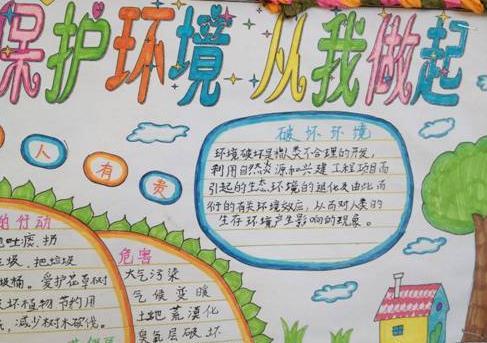 保护环境 从我做起
人 有 责
破坏环境
环境破坏是指人类不合理的开发,
利用自然资源和兴建工程项目而
引起的生态环境的退化及由此而
衍的有关环境效应,从而对人类的
生存环境产生影响的现象。
的行动
地吐痰、扔
垃圾、把垃圾
圾桶。爱护花草树
坏植物节约用
,减少树木砍伐。
危害
大气污染
气候变暖
土地荒漠化
臭氧层破坏